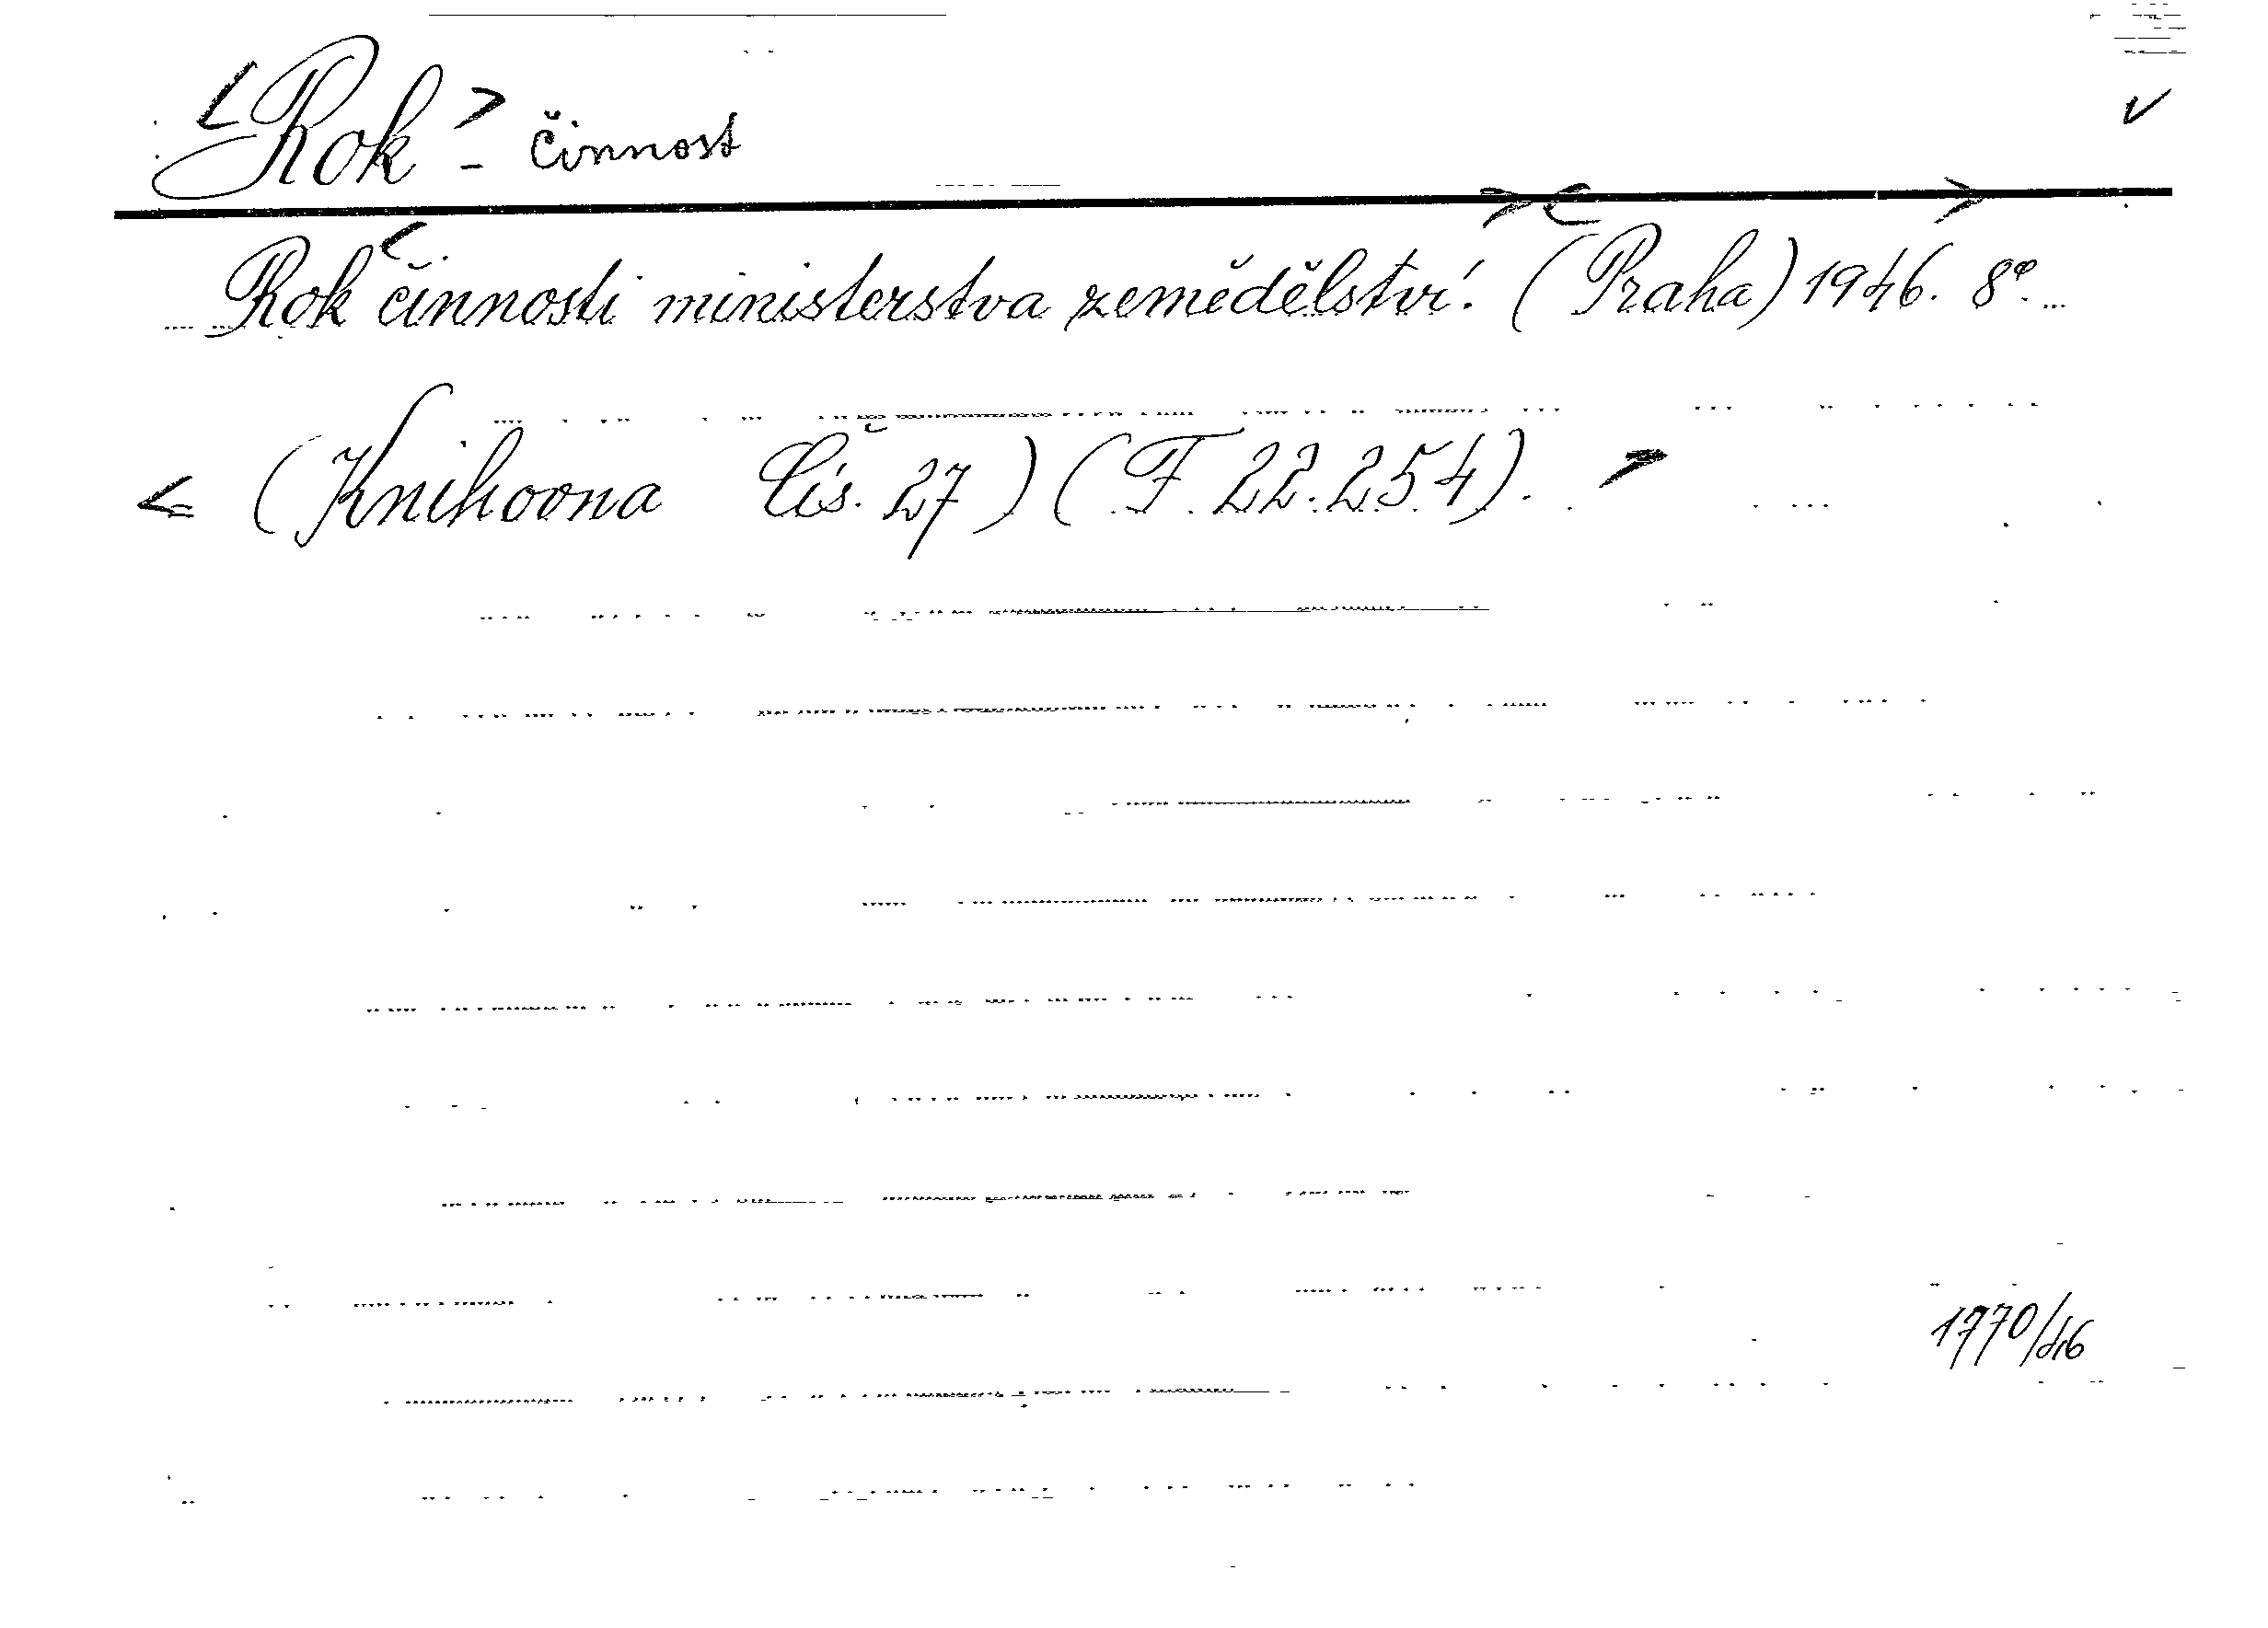 <Rok> - činnost ✓
Rok <činnosti ministerstva zemědělství.> <(Praha)> 1946. 8°.
< (Knihovna Čís. 27) (F 22.254). >
1770/46